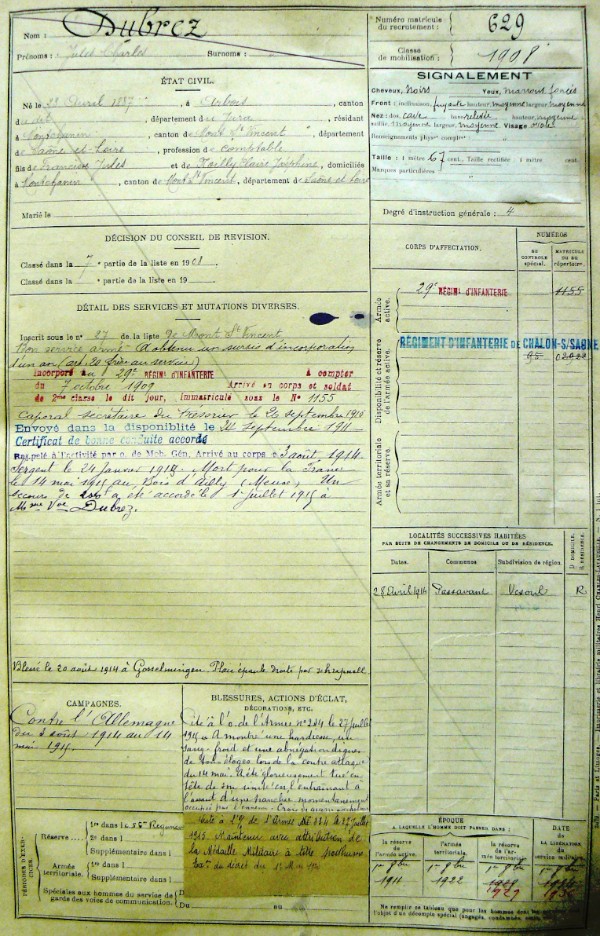 Nom : Dubrez
Prénoms : Jules Charles Surnoms :
Numéro matricule du recrutement : 629
Classe de mobilisation : 1908
SIGNALEMENT
Cheveux, noirs Yeux, marrons foncés
Front : inclinaison, fuyante hauteur, moyenne largeur, moyenne
Nez : dos cave base relevée hauteur, moyenne
saillie moyenne largeur, moyenne Visage ovale
Renseignements physion. complém.
Taille : 1 mètre 67 cent. Taille rectifiée : 1 mètre cent.
Marques particulières :
Degré d'instruction générale : 4
ÉTAT CIVIL.
Né le 22 Avril 1887, à Arbois, canton
du dit, département du Jura, résidant
à Montchanin, canton de Mont St Vincent, département
de Saône-et-Loire, profession de comptable
fils de François Jules et de Failly Claire Joséphine, domiciliés
à Montchanin, canton de Mont St Vincent, département de Saône et Loire
Marié le
DÉCISION DU CONSEIL DE REVISION.
Classé dans la 7e partie de la liste en 1908
Classé dans la partie de la liste en 19
DÉTAIL DES SERVICES ET MUTATIONS DIVERSES.
Inscrit sous le n° 27 de la liste de Mont St Vincent
Bon service armé. A obtenu un sursis d'incorporation
d'un an (art. 20 frère au service)
Incorporé au 29e RÉGIMt D'INFANTERIE à compter
du 7 octobre 1909 Arrivé au corps et soldat
de 2me classe le dit jour, immatriculé sous le N° 1155
Caporal secrétaire du Trésorier le 26 septembre 1910
Envoyé dans la disponibilité le 24 septembre 1911
Certificat de bonne conduite accordé
Rappelé à l'activité par o. de Mob. Gén. Arrivé au corps le 3 août 1914
Sergent le 24 janvier 1915. Mort pour la France
le 14 mai 1915 au Bois d'Ailly (Meuse). Un
secours de 150 a été accordé le 1er juillet 1915 à
Mme Vve Dubrez.
Blessé le 20 août 1914 à Gosselmingen. Plaie épaule droite par schrapnell.
CORPS D'AFFECTATION.
NUMÉROS
AU CONTROLE spécial.
MATRICULE OU DU répertoire.
Armée active.
29e RÉGIMt D'INFANTERIE 1155
Disponibilité et réserve de l'armée active.
RÉGIMENT D'INFANTERIE DE CHALON-S/SAONE
Armée territoriale et sa réserve.
LOCALITÉS SUCCESSIVES HABITÉES
PAR SUITE DE CHANGEMENTS DE DOMICILE OU DE RÉSIDENCE.
Dates. Communes Subdivision de région. D. DOMICILE. R. RÉSIDENCE.
28 Avril 1914 Passavant Vesoul R
CAMPAGNES.
Contre l'Allemagne
du 3 août 1914 au 14
mai 1915.
BLESSURES, ACTIONS D'ÉCLAT,
DÉCORATIONS, ETC.
Cité à l'o. de l'Armée n° 234 le 27 juillet
1915 « A montré une hardiesse, un
sang-froid et une abnégation dignes
de tous éloges lors de la contre attaque
du 14 mai. A été glorieusement tué en
tête de son unité en l'entraînant à
l'assaut d'une tranchée momentanément
occupée par l'ennemi.
Cité à l'O. de l'Armée N° 234 le 27 Juillet
1915. Maintenue avec attribution de
la Médaille Militaire à titre posthume
PÉRIODES D'EXERCICES.
Réserve
1re dans le 56e Régiment
2e dans l
Supplémentaire dans l
Armée territoriale.
1re dans l
Supplémentaire dans l
Spéciales aux hommes du service de
gardes des voies de communication.
Du au
ÉPOQUE
A LAQUELLE L'HOMME DOIT PASSER DANS :
la réserve de l'armée active.
l'armée territoriale.
la réserve de l'armée territoriale.
DATE DE LA LIBÉRATION du service militaire.
1er 8bre 1er 8bre 1er 8bre 1er 8bre
1911 1922
Ne remplir ce tableau que pour les hommes dont
l'objet d'un décompte spécial (engagés, condamnés,